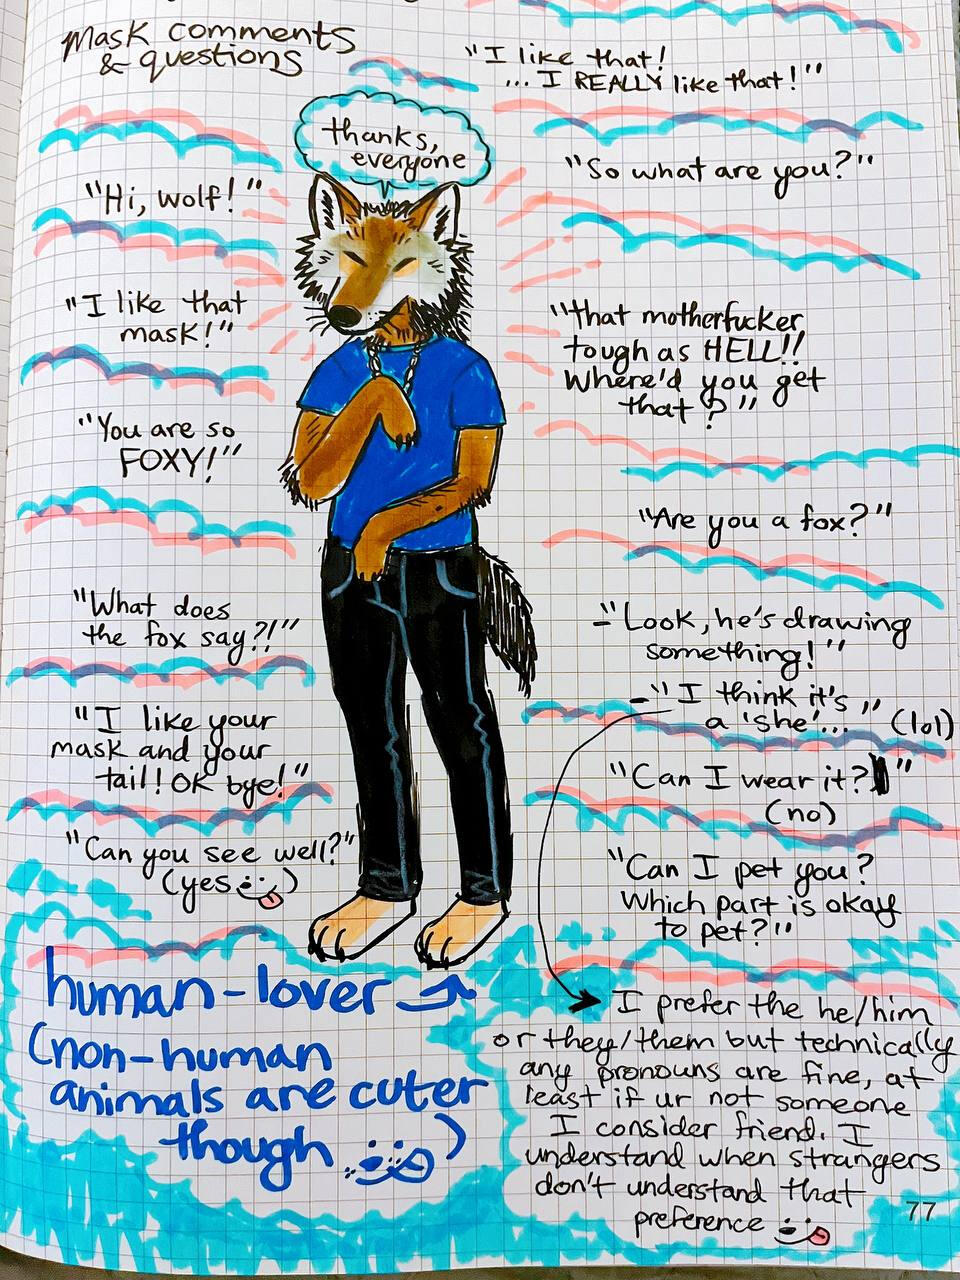 Mask comments
& questions
"I like that!
... I REALLY like that!"
thanks,
everyone
"Hi, wolf!"
"So what are you?"
"I like that
mask!"
"That motherfucker
tough as HELL!!
Where'd you get
that?"
"You are so
FOXY!"
"Are you a fox?"
"What does
the fox say?!"
-"Look, he's drawing
something!"
-"I think it's
a 'she'..." (lol)
"I like your
mask and your
tail! OK bye!"
"Can I wear it?"
(no)
"Can you see well?"
(yes)
"Can I pet you?
Which part is okay
to pet?"
human-lover
(non-human
animals are cuter
though )
I prefer the he/him
or they/them but technically
any pronouns are fine, at
least if ur not someone
I consider friend. I
understand when strangers
don't understand that
preference
77